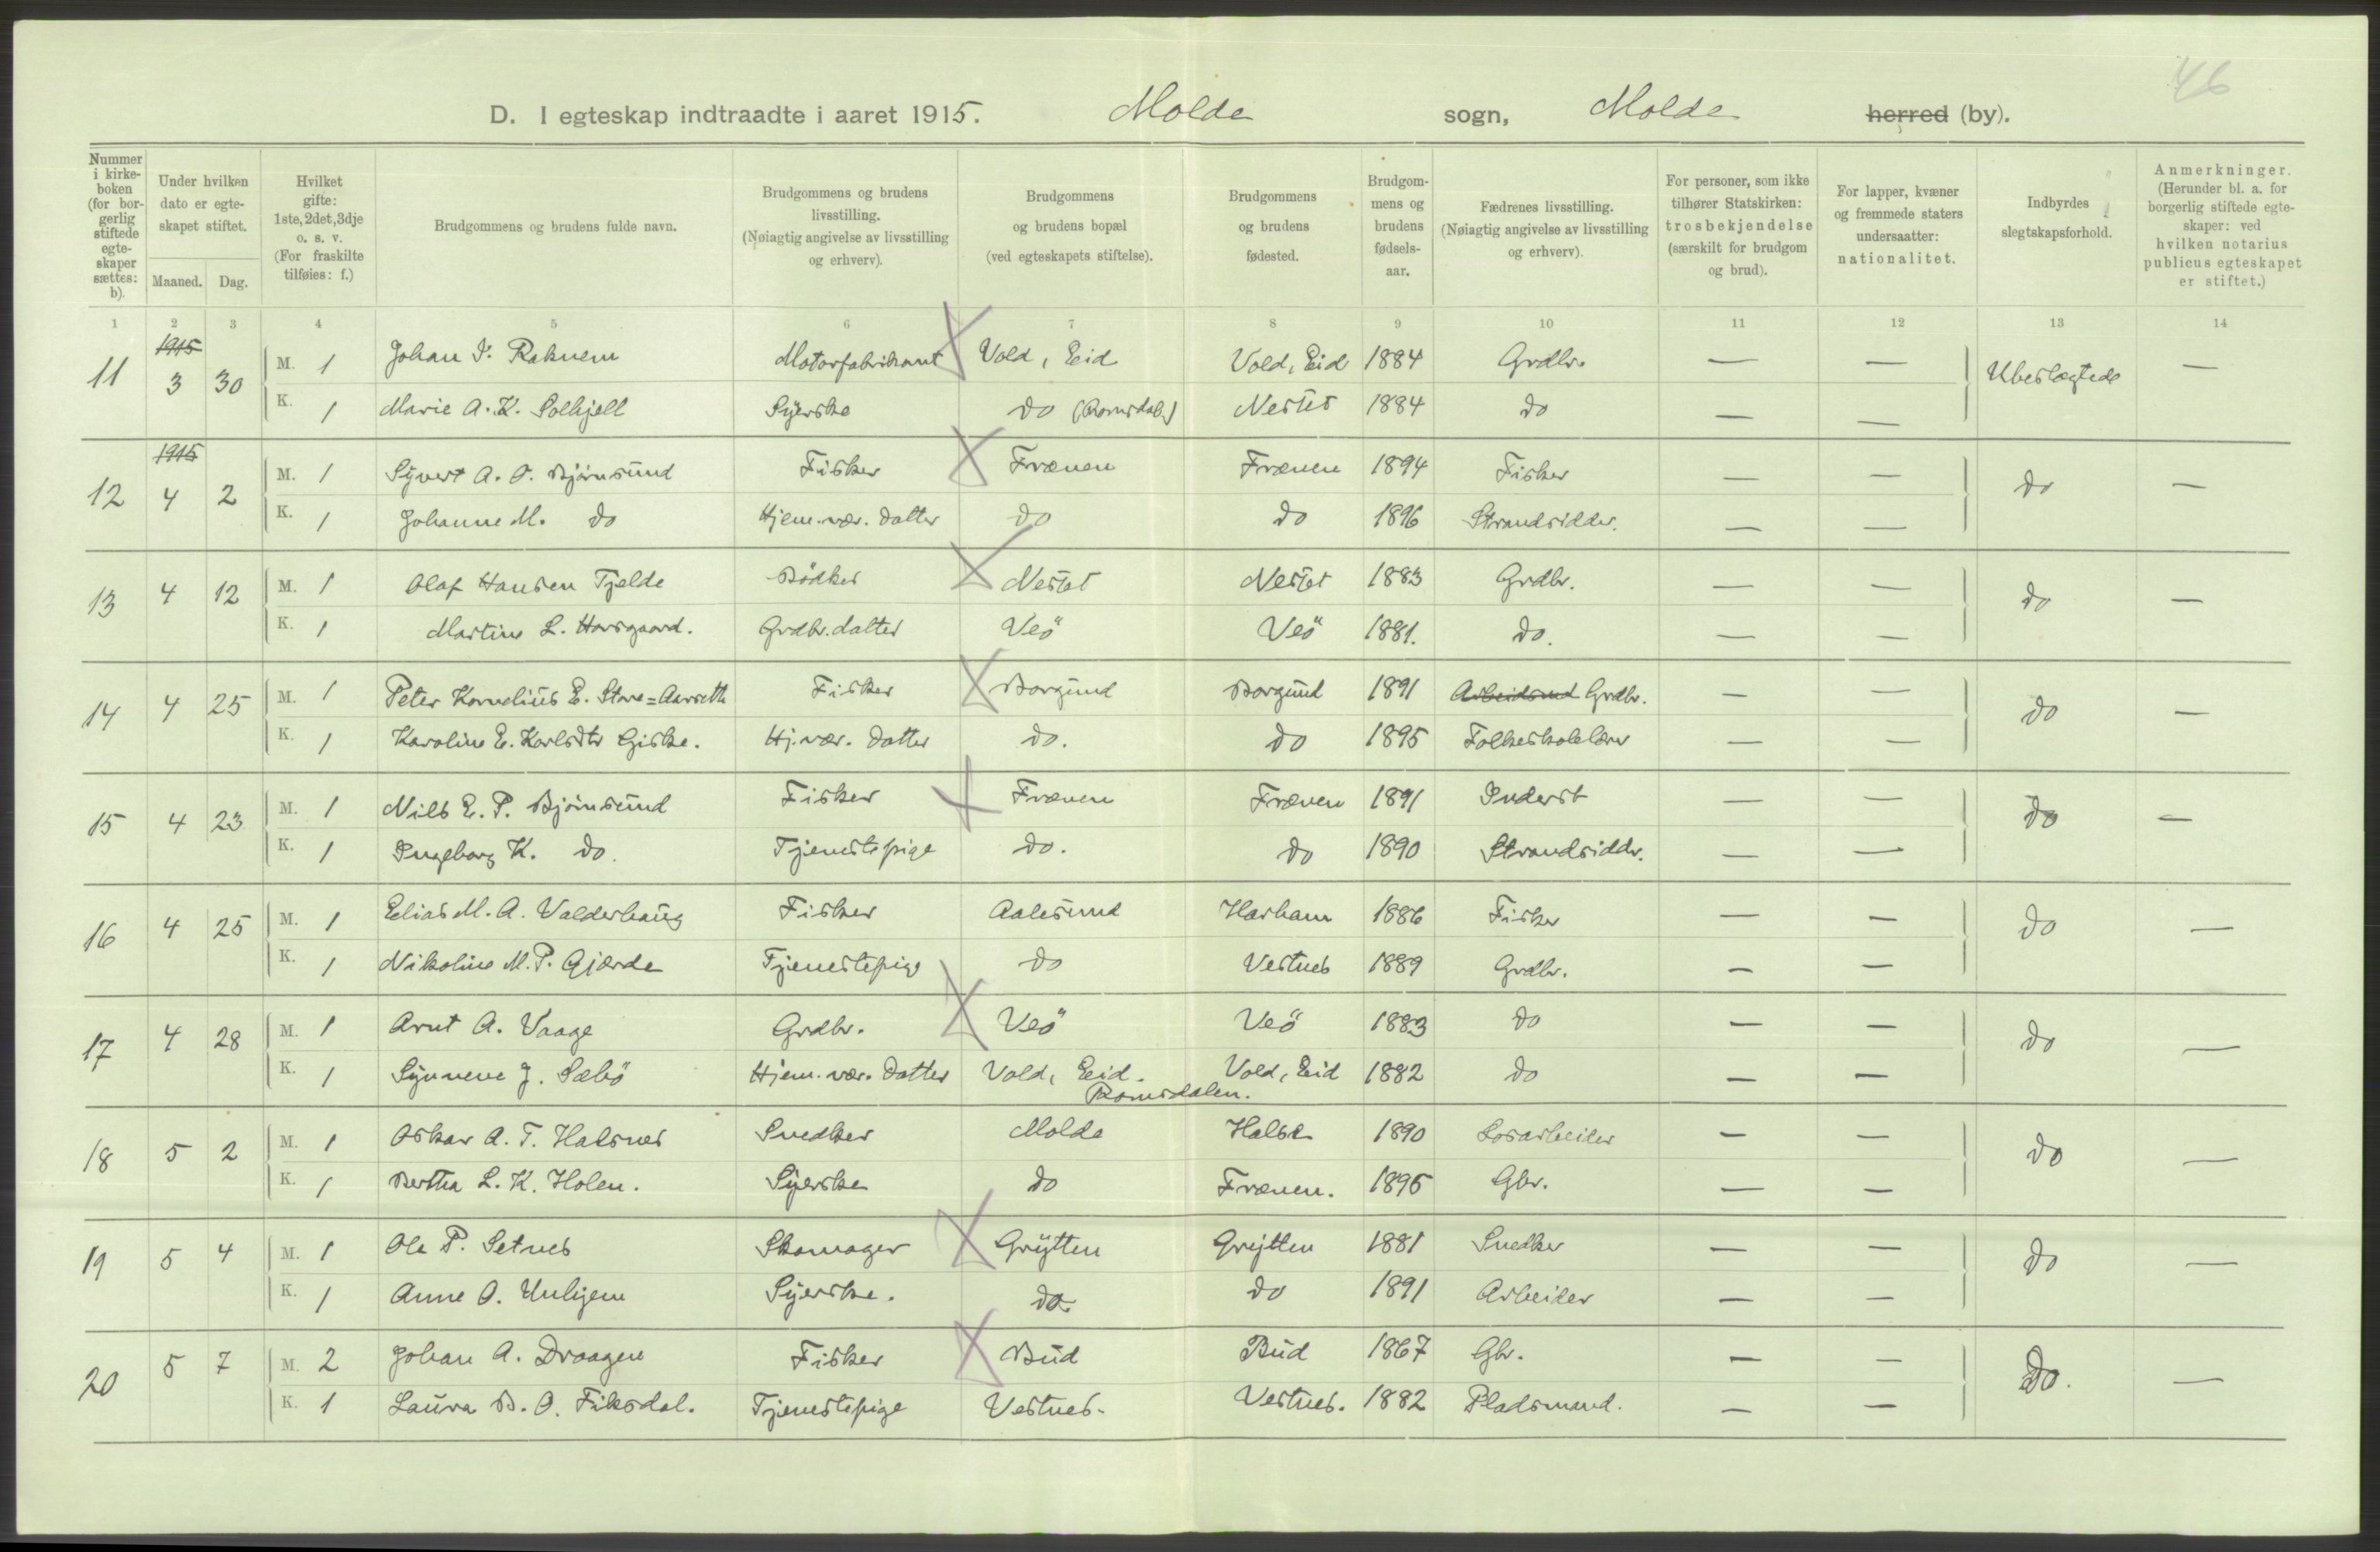 46
D. I egteskap indtraadte i aaret 1915. Molde sogn, Molde herred (by).
Nummer i kirkeboken (for borgerlig stiftede egteskaper sættes: b).
Under hvilken dato er egteskapet stiftet.
Maaned. Dag.
Hvilket gifte: 1ste, 2det, 3dje o. s. v. (For fraskilte tilføies: f.)
Brudgommens og brudens fulde navn.
Brudgommens og brudens livsstilling. (Nøiagtig angivelse av livsstilling og erhverv).
Brudgommens og brudens bopæl (ved egteskapets stiftelse).
Brudgommens og brudens fødested.
Brudgommens og brudens fødselsaar.
Fædrenes livsstilling. (Nøiagtig angivelse av livsstilling og erhverv).
For personer, som ikke tilhører Statskirken: trosbekjendelse (særskilt for brudgom og brud).
For lapper, kvæner og fremmede staters undersaatter: nationalitet.
Indbyrdes slegtskapsforhold.
Anmerkninger. (Herunder bl. a. for borgerlig stiftede egteskaper: ved hvilken notarius publicus egteskapet er stiftet.)
1 2 3 4 5 6 7 8 9 10 11 12 13 14
1915
11 3 30 M. 1 Johan J. Raknem Motorfabrikant Vold, Eid Vold, Eid 1884 Grdbr. — — Ubeslægtede —
K. 1 Marie A. K. Solhjell Syerske do (Romsdal) Nesset 1884 do — —
1915
12 4 2 M. 1 Syvert A. O. Bjørnsund Fisker Frænen Frænen 1894 Fisker — — do —
K. 1 Johanne M. do Hjem. vær. datter do do 1896 Strandsidder. — —
13 4 12 M. 1 Olaf Hansen Tjelde Bödker Nesset Nesset 1883 Grdbr. — — do —
K. 1 Martine L. Horsgaard. Grdbr. datter Veö Veö 1881. do. — —
14 4 25 M. 1 Peter Kornelius E. Store=Aarseth Fisker Borgund Borgund 1891 Arbeidsmd Grdbr. — — do —
K. 1 Karoline E. Karlsdtr Giske. Hj. vær. datter do. do 1895 Folkeskolelærer — —
15 4 23 M. 1 Nils E. P. Bjørnsund Fisker Frænen Frænen 1891 Inderst — — do —
K. 1 Ingeborg K. do. Tjenestepige do. do 1890 Strandsidder. — —
16 4 25 M. 1 Elias M. A. Valderhaug Fisker Aalesund Harham 1886 Fisker — — do —
K. 1 Nikoline M. P. Gjærde Tjenestepige do Vestnes 1889 Grdbr. — —
17 4 28 M. 1 Arnt A. Vaage Grdbr. Veö Veö 1883 do — — do —
K. 1 Synneve J. Sæbö Hjem. vær. datter Vold, Eid. Vold, Eid 1882 do — —
Romsdalen.
18 5 2 M. 1 Oskar A. T. Halsnes Snedker Molde Halse 1890 Løsarbeider — — do —
K. 1 Bertha L. K. Holen. Syerske do Frænen. 1895 Gbr. — —
19 5 4 M. 1 Ole P. Setnes Skomager Grytten Grytten 1881 Snedker — — do —
K. 1 Anne O. Unhjem Syerske. do. do 1891 Arbeider — —
20 5 7 M. 2 Johan A. Draagen Fisker Bud Bud 1867 Gbr. — — do. —
K. 1 Laura B. O. Fiksdal. Tjenestepige Vestnes. Vestnes. 1882 Pladsmand. — —